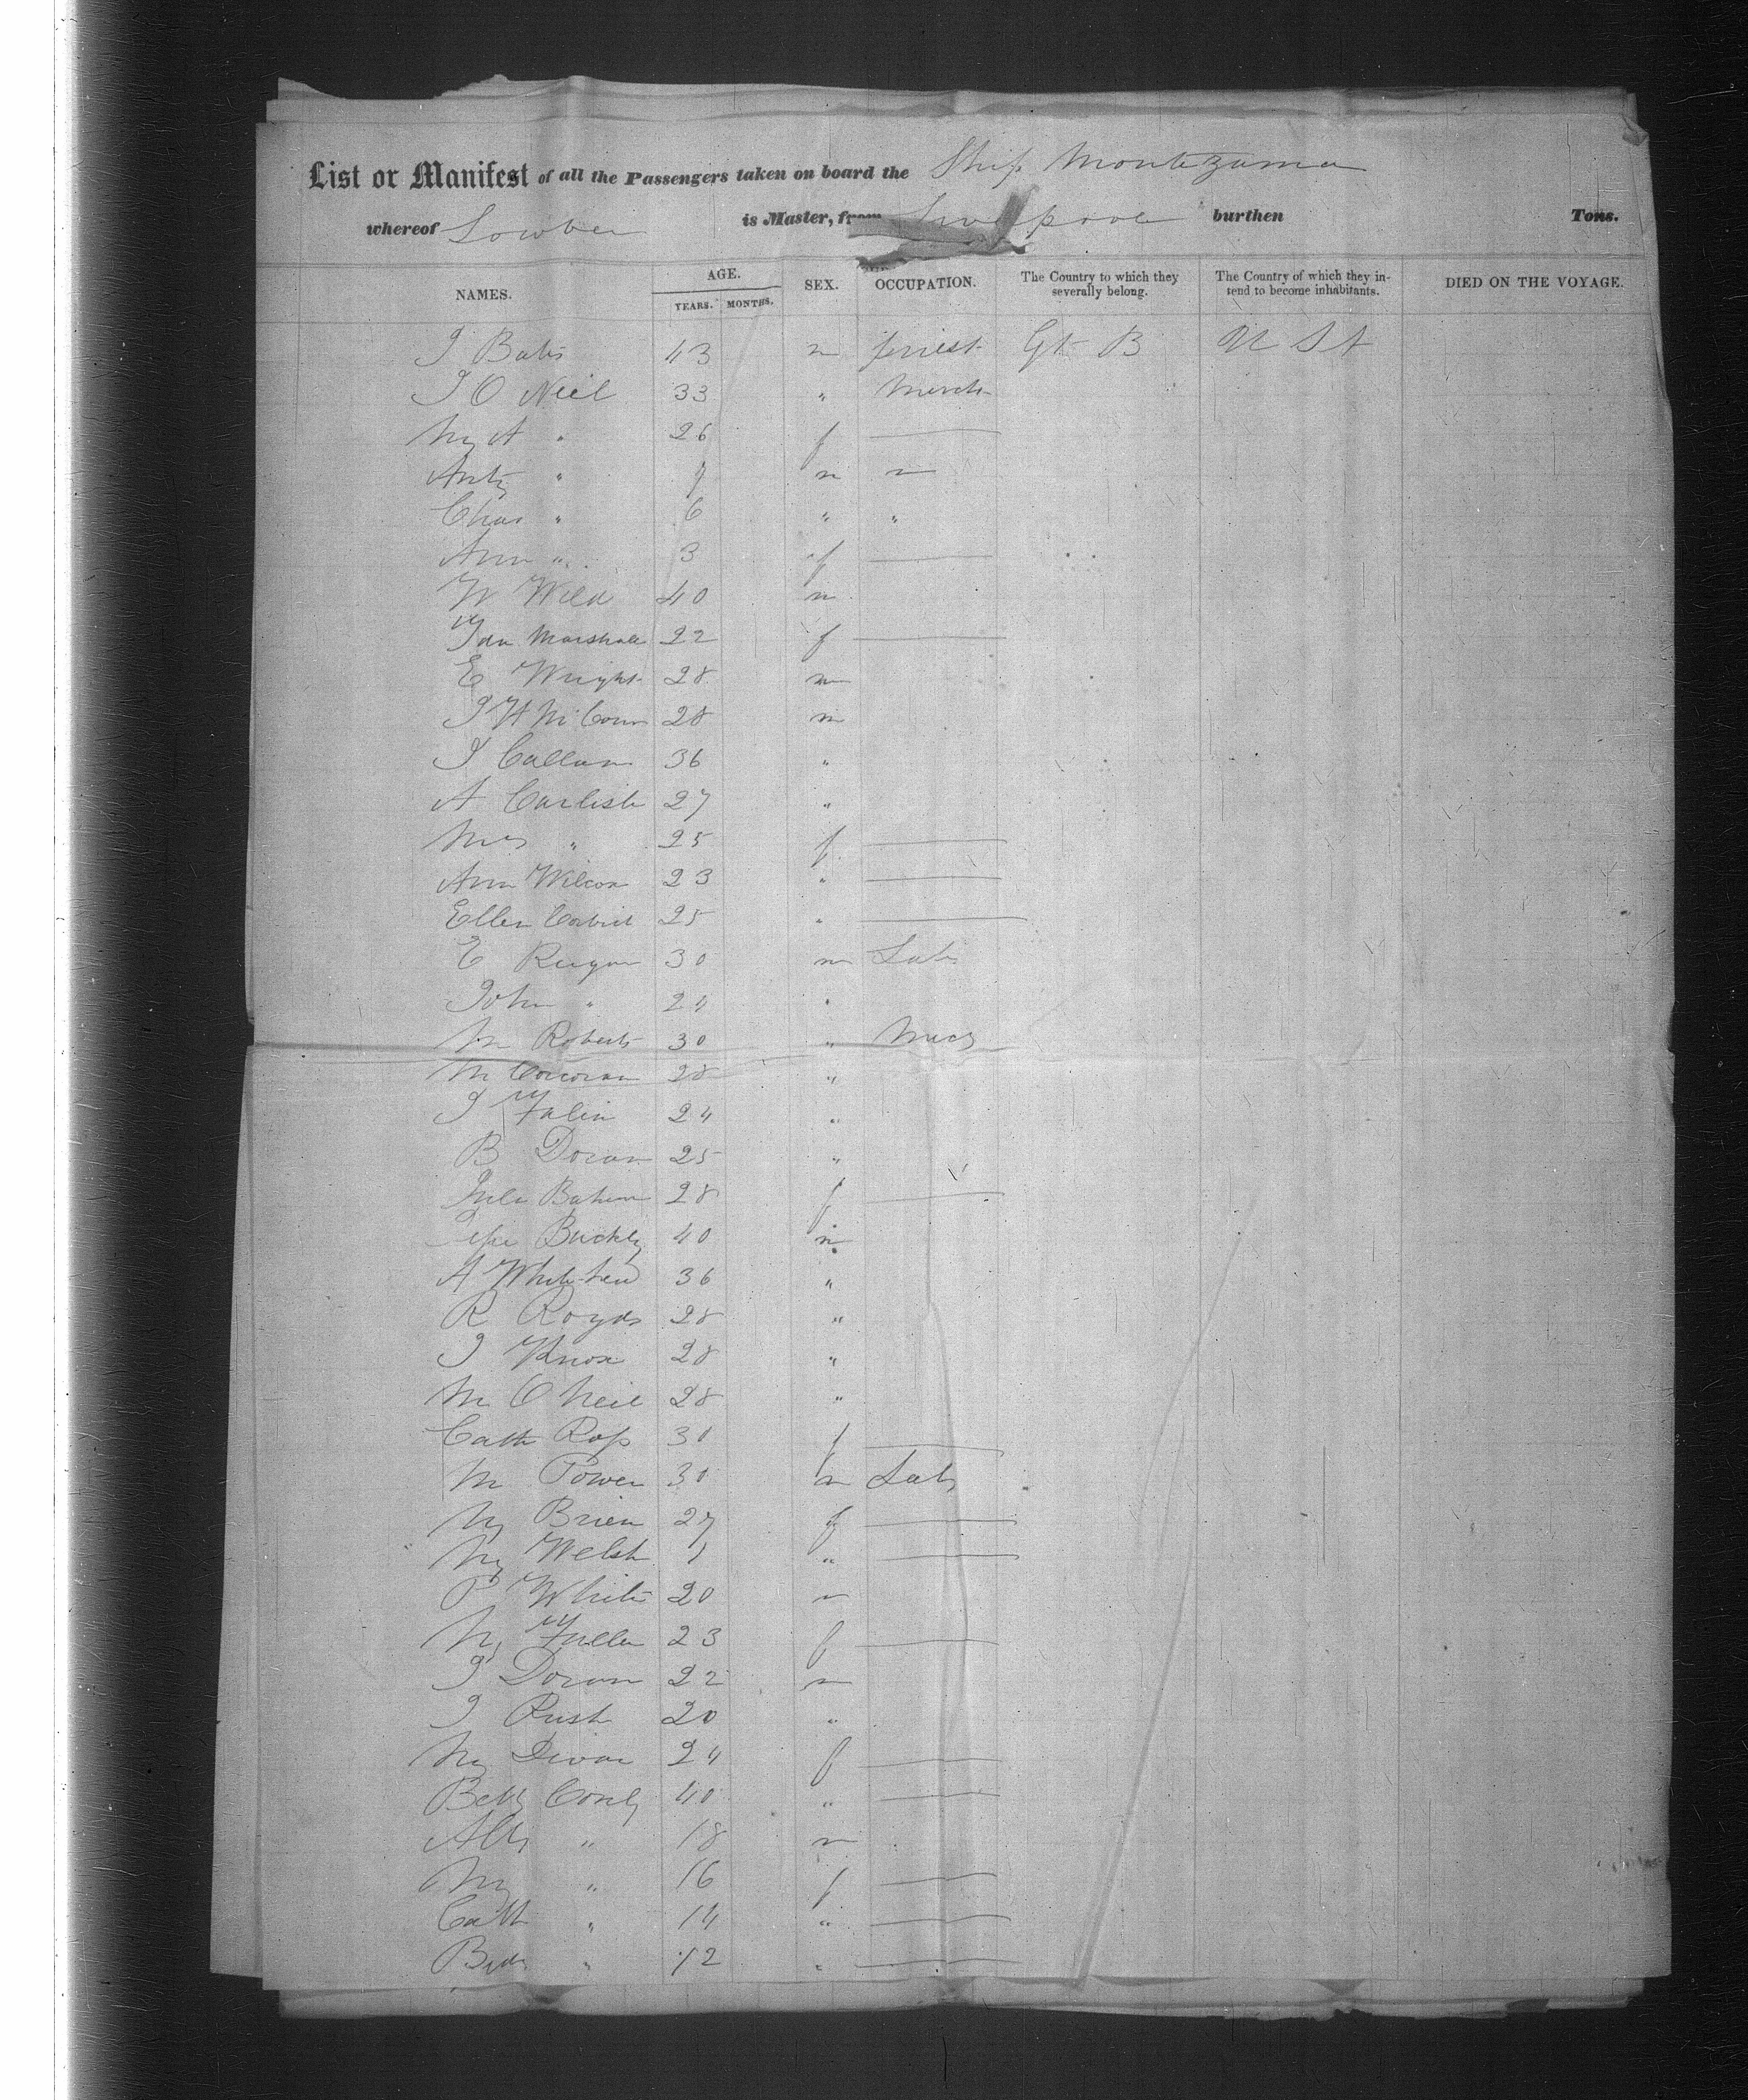 List or Manifest of all the Passengers taken on board the Ship Montezuma
whereof Lowber is Master, from Liverpool burthen Tons.
NAMES. AGE. YEARS. MONTHS. SEX. OCCUPATION. The Country to which they severally belong. The Country of which they intend to become inhabitants. DIED ON THE VOYAGE.
J 43 m priest Gt B U St
J O Neil 33 " Merch
My A " 26 f
" 7 m "
Chas " 6 " "
Ann " 3 f
W Wild 40 m
Marshall 22 f
E Wright 28 m
J H 28 m
J Callan 36 "
A Carlisle 27 "
Mrs " 25 f
Ann Wilcox 23 "
Ellen 25 "
E Regan 30 m Lab
John " 24 "
M Roberts 30 " Mecs
M Corcoran 28 "
J 24 "
B Doran 25 "
28 f
Buckly 40 m
A Whitehead 36 "
R Royds 28 "
J Knox 28 "
M O Neil 28 "
Cath Ross 30 f
M Power 30 m Lab
My Brien 27 f
My Welsh 1 "
P White 20 m
My Fuller 23 f
J Doran 22 m
J Rush 20 "
My 24 f
Betty Conly 40 "
" 18 m
My " 16 f
Cath " 14 "
" 12 "